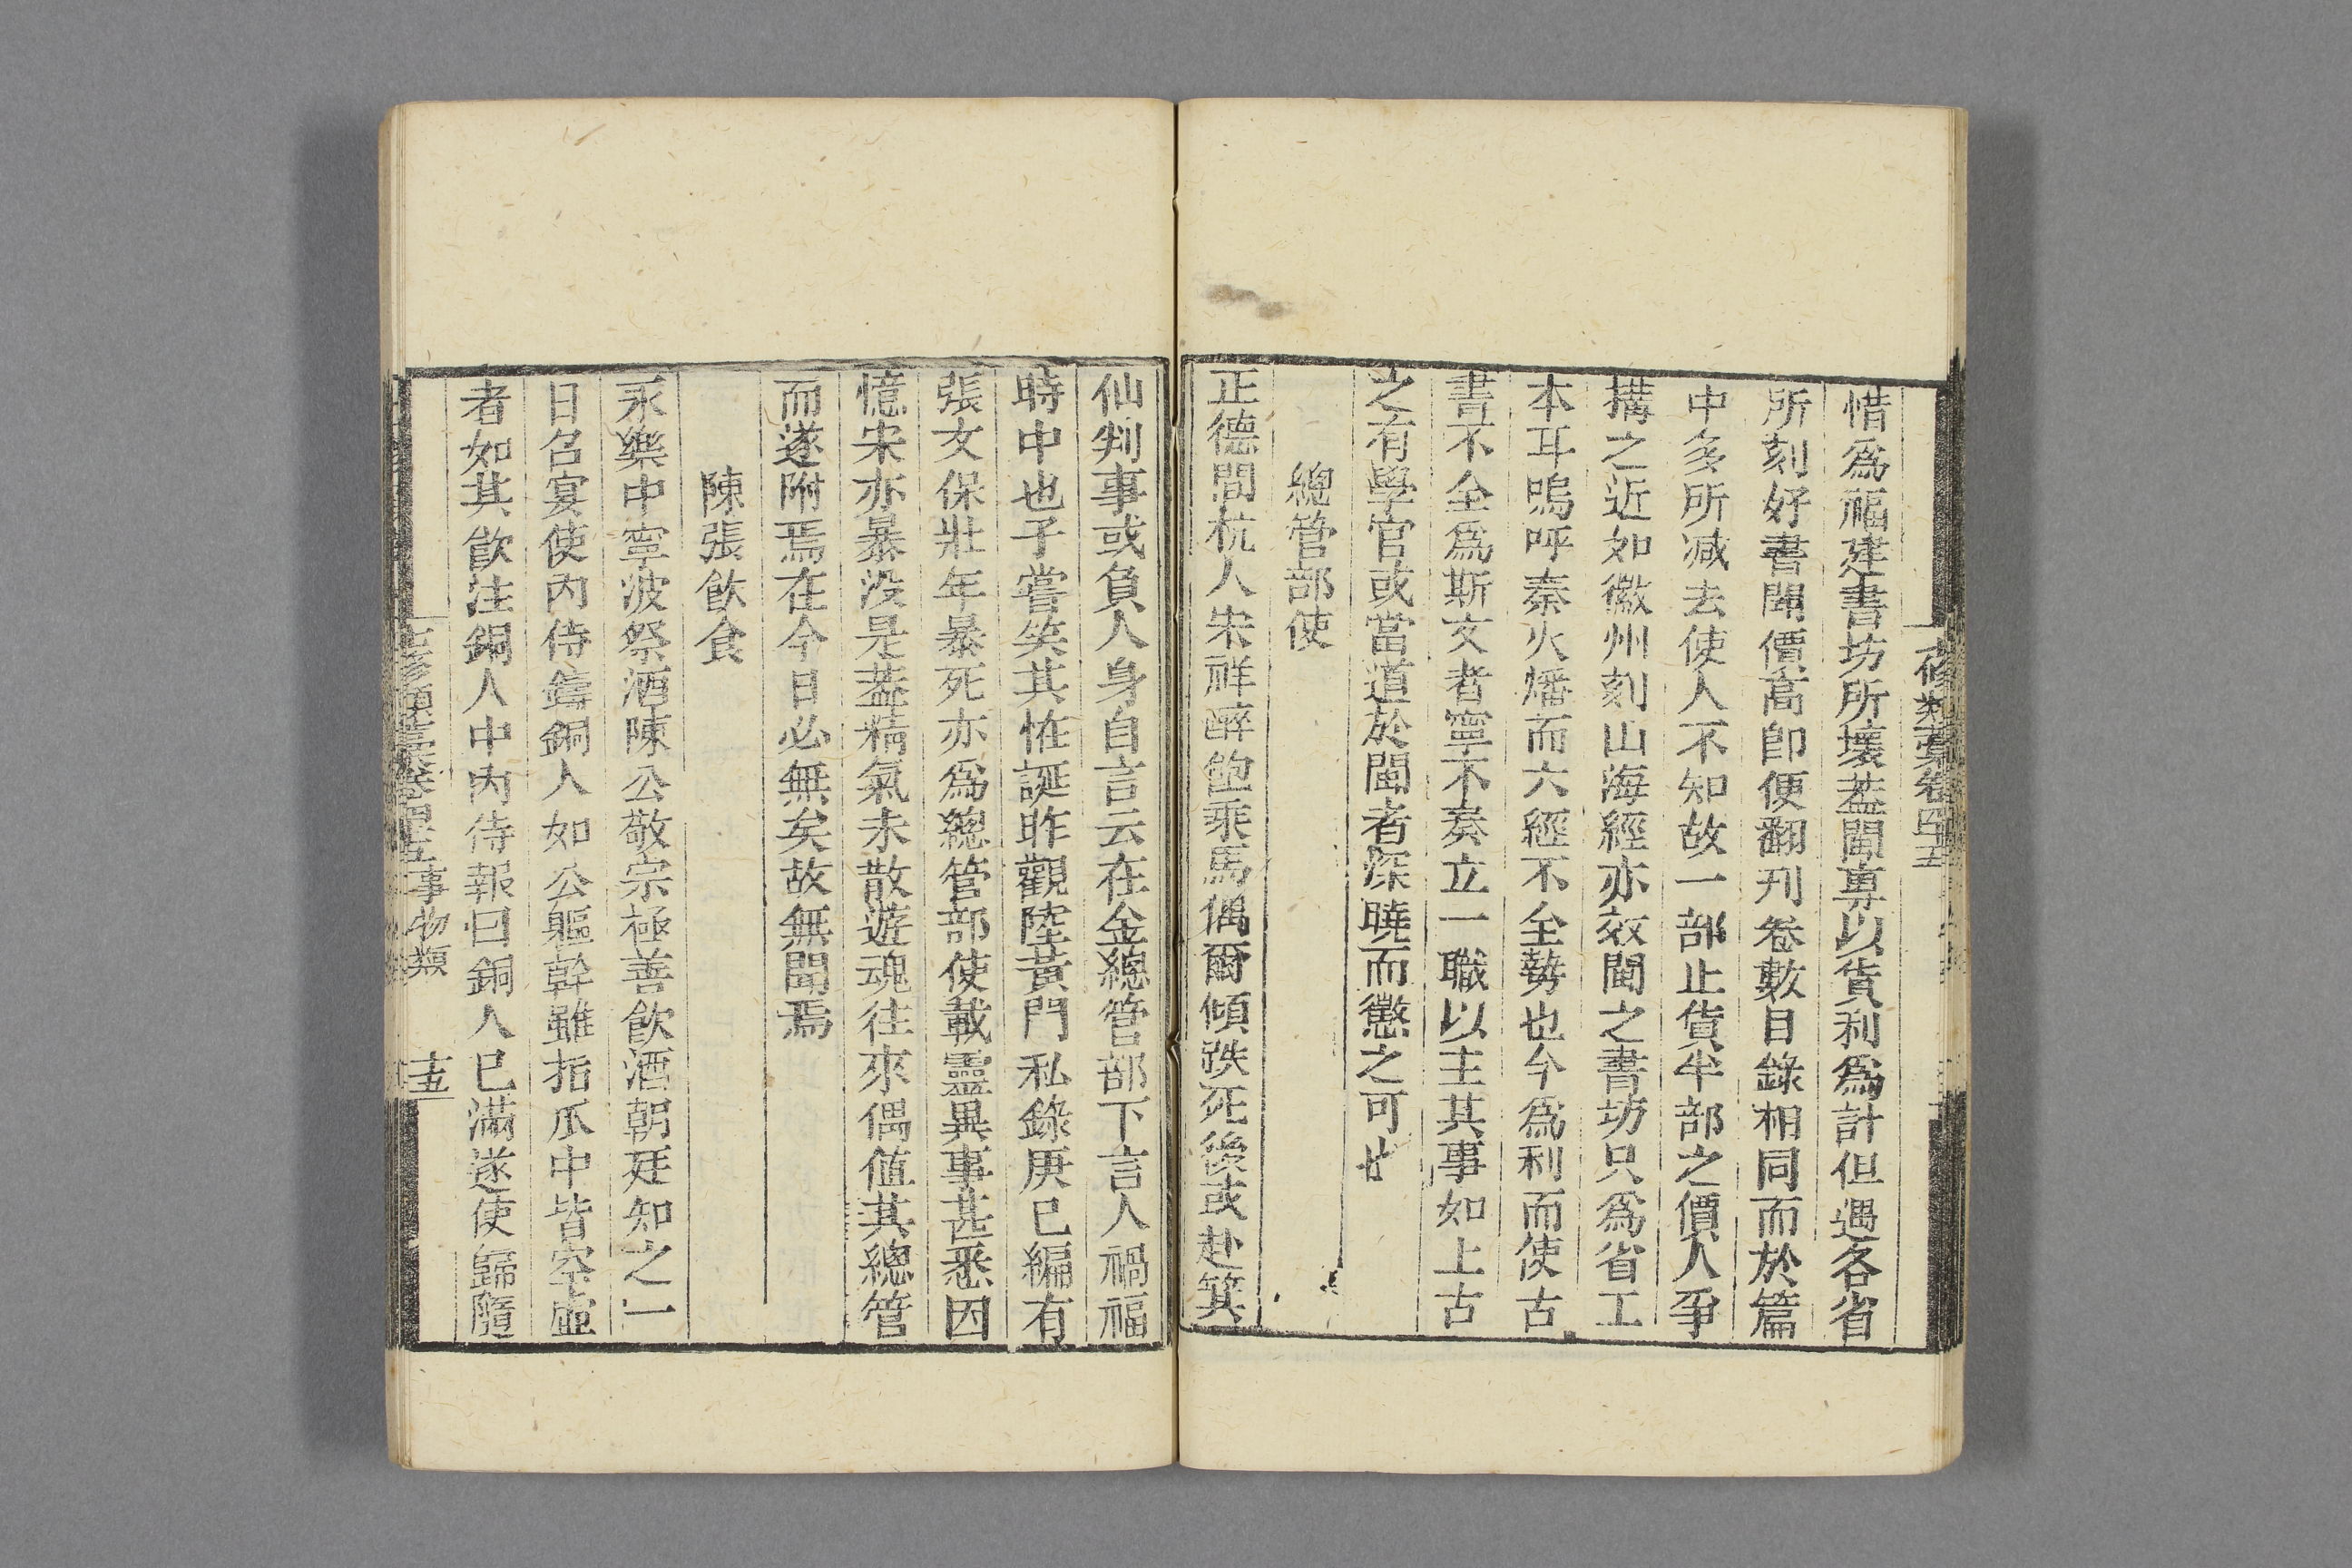 惜爲福建書坊所壞葢閩專以貨利爲計但遇各省
所刻好書聞價高卽便翻刋卷數目錄相同而於篇
中多所减去使人不知故一部止貨半部之價人爭
搆之近如徽州刻山海經亦效閩之書坊只爲省工
本耳嗚呼秦火燔而六經不全勢也今爲利而使古
書不全爲斯文者寧不奏立一職以主其事如上古
之有學官或當道於閩者深曉而懲之可也
總管部使
正德間杭人宋祥醉飽乘馬偶爾傾跌死後或赴箕
仙判事或負人身自言云在金總管部下言人禍福
時中也予嘗笑其恠誕昨觀陸黃門私錄庚巳編有
張文保壯年暴死亦爲總管部使載靈異事甚悉因
憶宋亦暴没是葢精氣未散遊魂往來偶値其總管
而遂附焉在今日必無矣故無聞焉
陳張飲食
永樂中寧波祭酒陳公敬宗極善飲酒朝廷知之一
日召宴使內侍鑄銅人如公軀幹雖指爪中皆空虛
者如其飲注銅人中內侍報曰銅人已滿遂使歸隨
七修類藁卷四十五事物類
十五